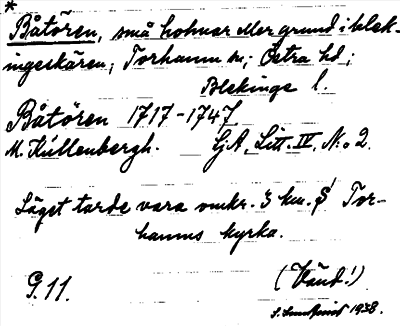 *
Båtören, små holmar eller grund i blek-
ingeskären; Torhamn sn; Östra hd;
Blekinge l.
Båtören 1717-1747
M. Küllenbergh. GA, Litt. IV, N:o 2.
Läget torde vara omkr. 3 km. S Tor-
hamns kyrka.
G. 11.
(Vänd!)
1938.